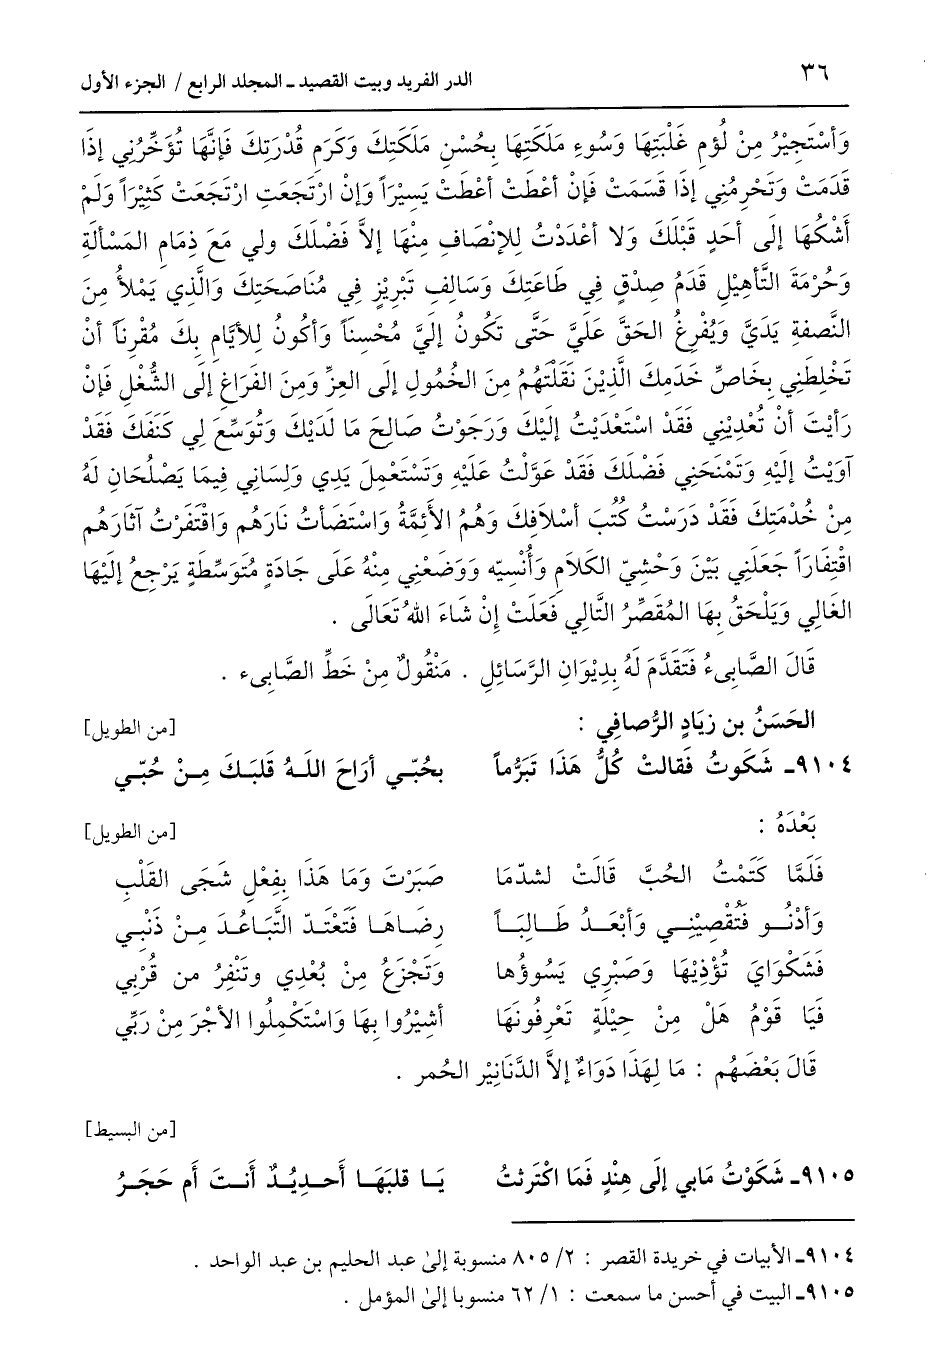 ٣٦ الدر الفريد وبيت القصيد ـ المجلد الرابع / الجزء الأول
وَأَسْتَجِيْرُ مِنْ لُؤمِ غَلْبَتِهَا وَسُوءِ مَلَكَتِهَا بِحُسْنِ مَلَكَتِكَ وَكَرَمِ قُدْرَتِكَ فَإنَّهَا تُؤَخِّرُنِي إذَا
قَدَمَتْ وَتَحْرِمُنِي إذَا قَسَمَتْ فَإنْ أعْطَتْ أعْطَتْ يَسِيْرَاً وَإنْ ارْتَجَعَتِ ارْتَجَعَتْ كَثِيْرَاً وَلَمْ
أَشْكُهَا إلَى أحَدٍ قَبْلَكَ وَلا أعْدَدْتُ لِلإنْصَافِ مِنْهَا إلاَّ فَضْلَكَ ولي مَعَ ذِمَامِ المَسْألَةِ
وَحُرْمَةَ التَّأهِيْلِ قَدَمُ صِدْقٍ فِي طَاعَتِكَ وَسَالِفِ تَبْرِيْزٍ فِي مُنَاصَحَتِكَ وَالَّذِي يَمْلأُ مِنَ
النَّصفةِ يَدَيَّ وَيُفْرِغُ الحَقَّ عَلَيَّ حَتَّى تَكُونُ إلَيَّ مُحْسِنَاً وَأكُونُ لِلأيَّامِ بِكَ مُقْرِنَاً أنْ
تَخْلِطَنِي بِخَاصِّ خَدَمِكَ الَّذِيْنَ نَقَلْتَهُمْ مِنَ الخُمُولِ إلَى العِزِّ وَمِنَ الفَرَاغِ إلَى الشُّغْلِ فَإنْ
رَأيْتَ أنْ تُعْدِيْنِي فَقَدْ اسْتَعْدَيْتُ إلَيْكَ وَرَجَوْتُ صَالِحَ مَا لَدَيْكَ وَتُوَسِّعَ لِي كَنَفَكَ فَقَدْ
آوَيْتُ إلَيْهِ وَتَمْنَحَنِي فَضْلَكَ فَقَدْ عَوَّلْتُ عَلَيْهِ وَتَسْتَعْمِلَ يَدِي وَلِسَانِي فِيمَا يَصْلُحَانِ لَهُ
مِنْ خُدْمَتِكَ فَقَدْ دَرَسْتُ كُتُبَ أسْلَافِكَ وَهُمُ الأَئِمَّةُ وَاسْتَضَأتُ نَارَهُم وَاقْتَفَرْتُ آثارَهُم
اقْتِفَارَاً جَعَلَنِي بَيْنَ وَحْشِيّ الكَلَامِ وَأُنْسِيّه وَوَضَعْنِي مِنْهُ عَلَى جَادَةٍ مُتَوَسِّطَةٍ يَرْجِعُ إلَيْهَا
الغَالِي وَيَلْحَقُ بِهَا المُقَصِّرُ التَّالِي فَعَلَتْ إنْ شَاءَ اللهُ تَعَالَى .
قَالَ الصَّابِيءُ فَتَقَدَّمَ لَهُ بِدِيْوَانِ الرَّسَائِلِ . مَنْقُولٌ مِنْ خَطِّ الصَّابِىء .
الحَسَنُ بن زيَادٍ الرُّصافِي : [من الطويل]
٩١٠٤ـ شَكَوتُ فَقالتْ كُلُّ هَذَا تَبَرُّماً بحُبّي أرَاحَ اللهُ قلبَكَ مِنْ حُبّي
بَعْدَهُ : [من الطويل]
فَلَمَّا كَتَمْتُ الحُبَّ قَالَتْ لشدّمَا صَبَرْتَ وَمَا هَذَا بِفِعْلِ شَجَى القَلْبِ
وَأدْنُو فَتُقْصِيْنِي وَأبْعَدُ طَالِبَاً رِضَاهَا فَتَعْتَدّ التَّبَاعُدَ مِنْ ذَنْبِي
فَشَكْوَايَ تُؤْذِيْهَا وَصَبْرِي يَسُوؤُها وَتَجْزَعُ مِنْ بُعْدِي وتَنْفِرُ من قُرْبِي
فَيَا قَوْمُ هَلْ مِنْ حِيْلَةٍ تَعْرِفُونَهَا أشِيْرُوا بِهَا وَاسْتَكْمِلُوا الأجْرَ مِنْ رَبِّي
قَالَ بَعْضَهُم : مَا لِهَذَا دَوَاءٌ إلاَّ الدَّنَانِيْر الحُمر .
[من البسيط]
٩١٠٥ـ شَكَوْتُ مَابي إلَى هِنْدٍ فَمَا اكْتَرثتُ يَا قلبَهَا أَحَدِيْدٌ أَنتَ أَم حَجَرُ
٩١٠٤ـ الأبيات في خريدة القصر : ٢/ ٨٠٥ منسوبة إلىٰ عبد الحليم بن عبد الواحد .
٩١٠٥ـ البيت في أحسن ما سمعت : ١/ ٦٢ منسوبا إلىٰ المؤمل .